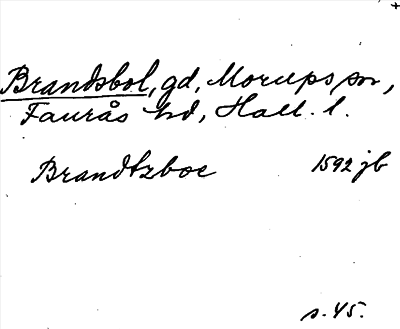 Brandsbol, gd, Morups sn,
Faurås hd, Hall. l.
Brandtzboe 1592 jb
s. 45.